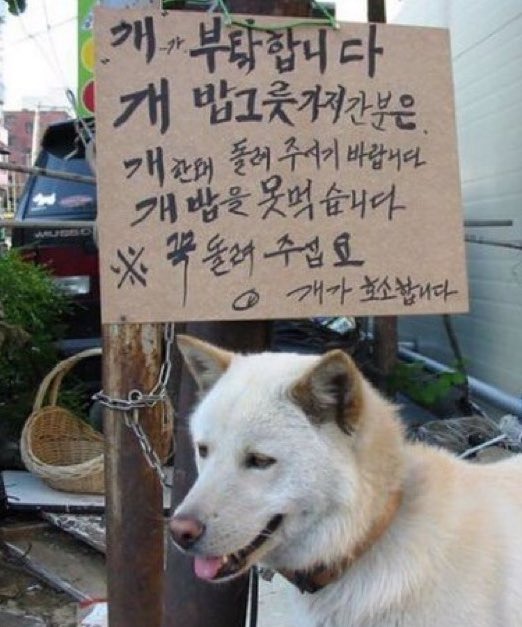 "개"가 부탁합니다
개 밥그릇 가져간분은.
개한테 돌려 주시기 바랍니다
개밥을 못먹습니다
※ 꼭 돌려 주섭요
개가 호소합니다
MUSSO